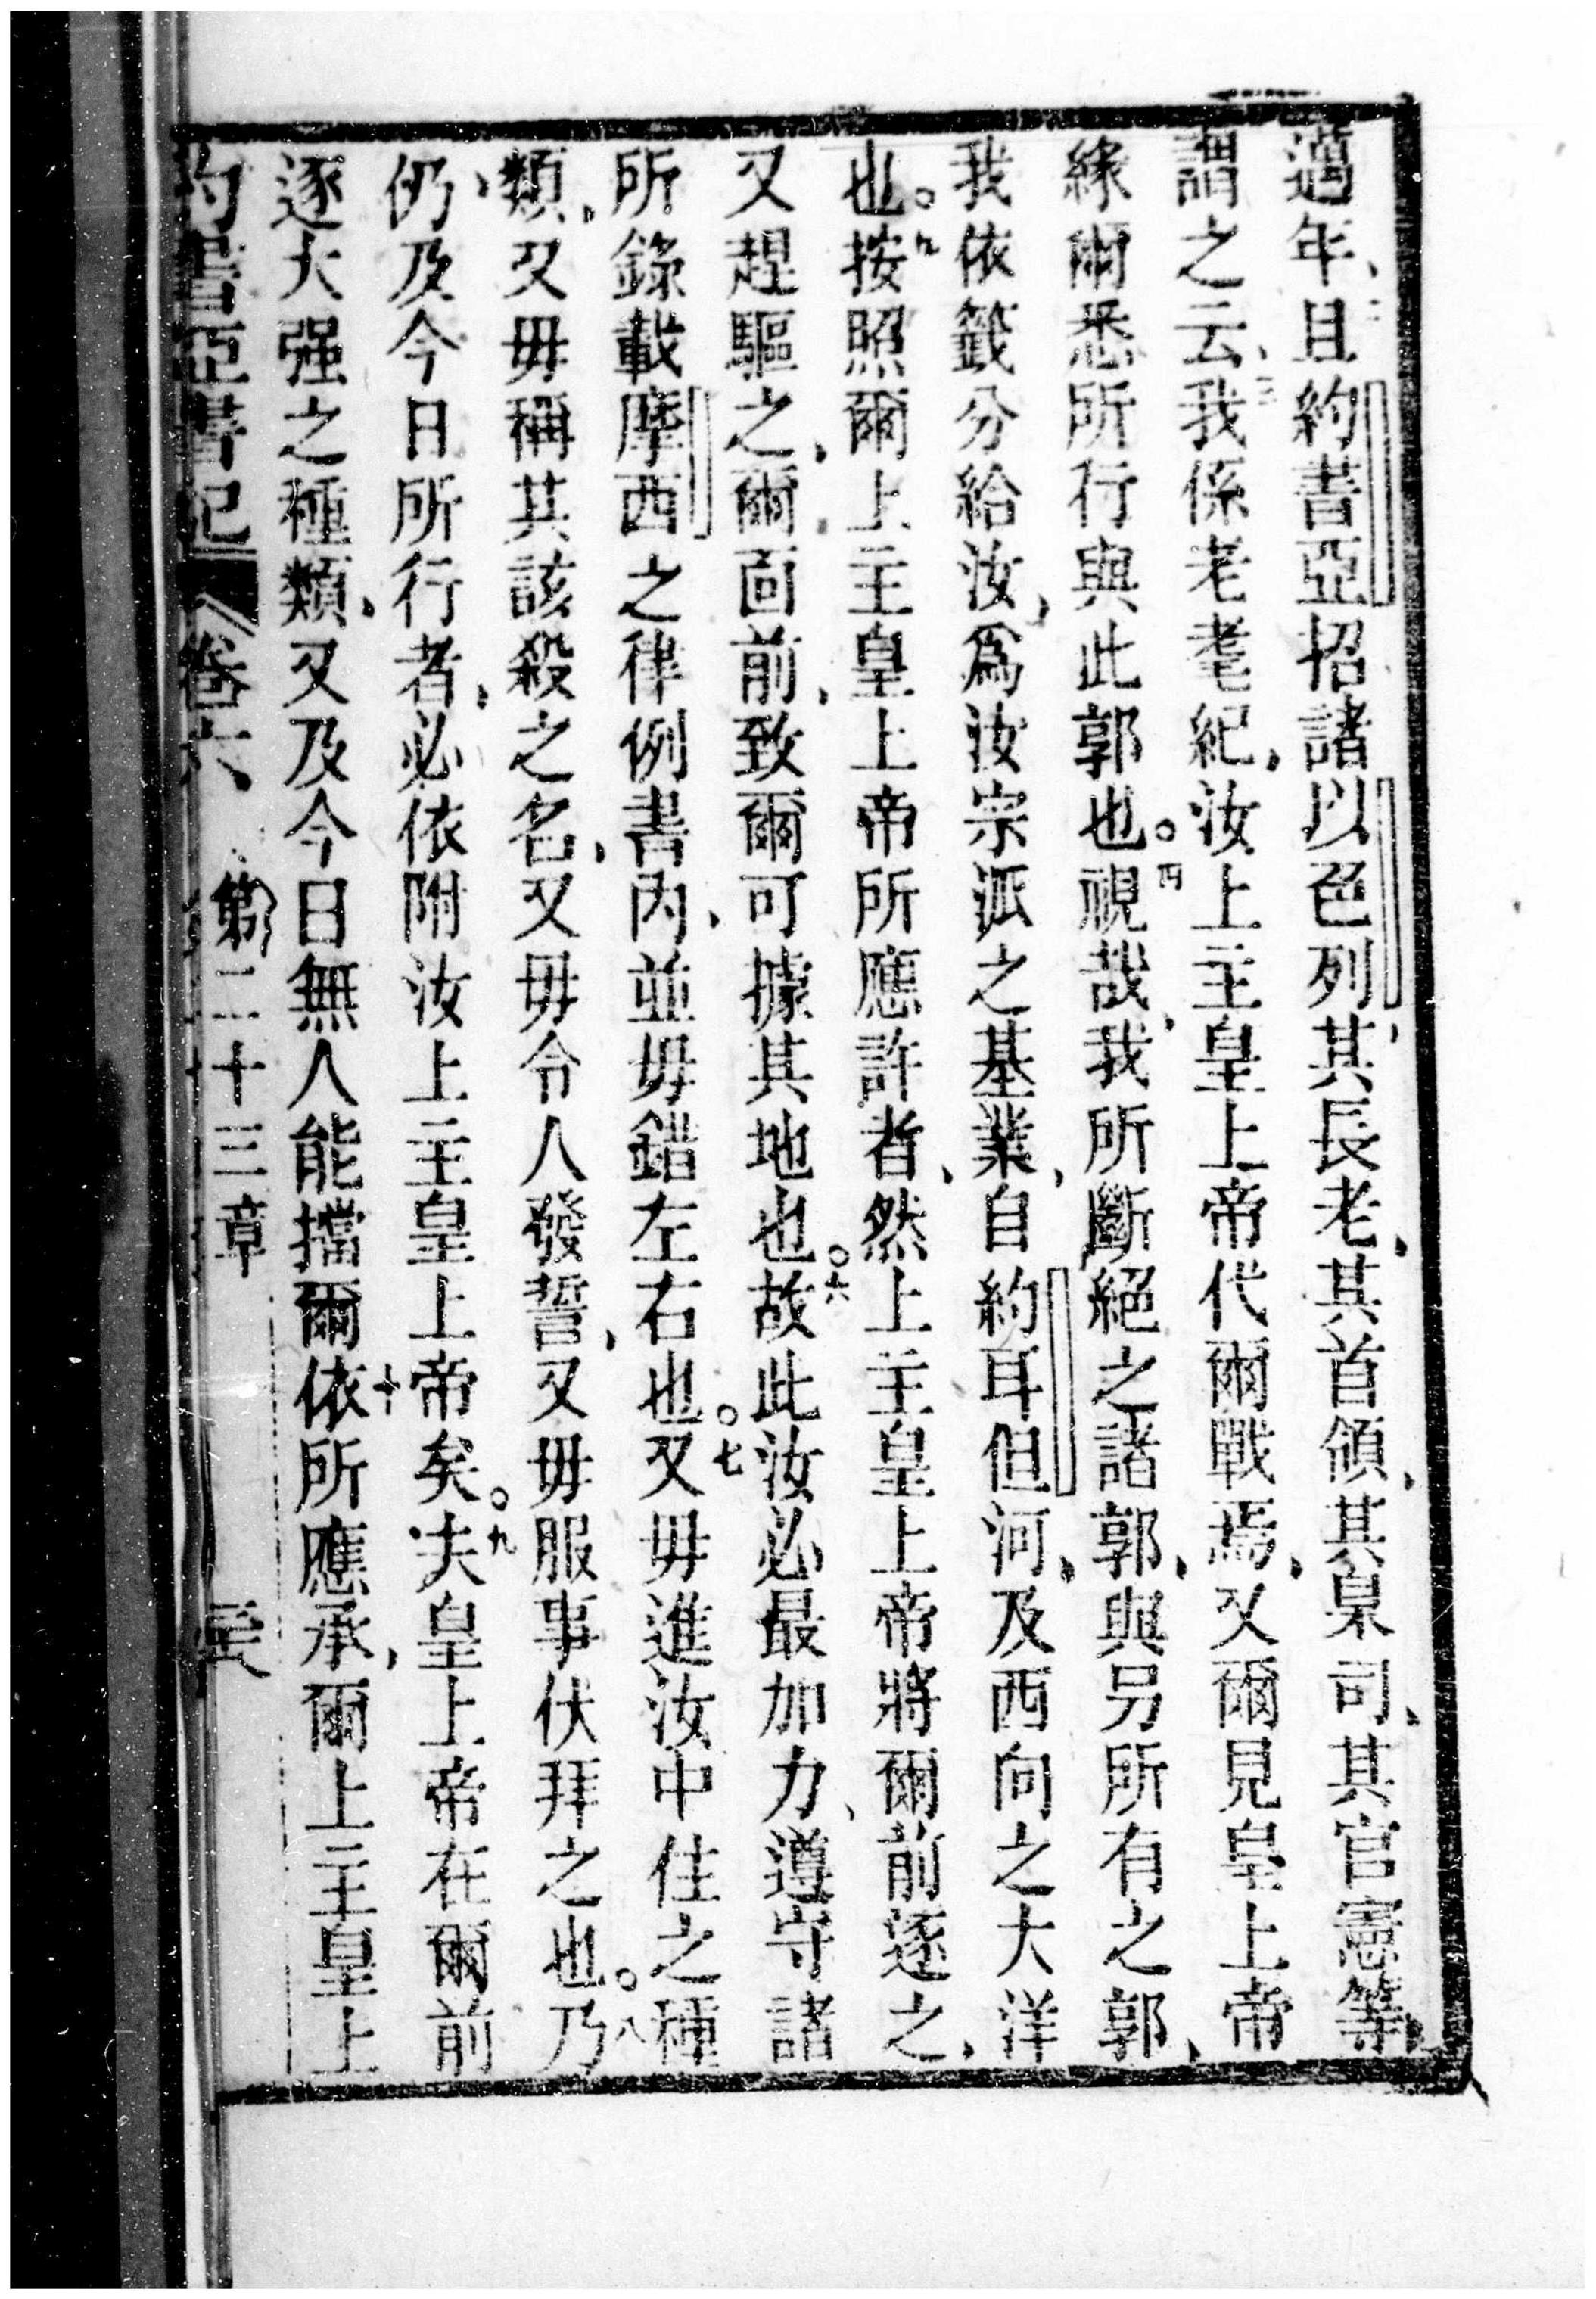 邁年、二且約書亞招諸以色列、其長老、其首領、其杲司、其官憲等、
謂之云、三我係老耄紀、汝上主皇上帝代爾戰焉、又爾見皇上帝
緣爾悉所行與此郭也。四視哉、我所斷絕之諸郭、與另所有之郭、
我依籤分給汝、為汝宗派之基業、自約耳但河、及西向之大洋
也。九按照爾上主皇上帝所應許者、然上主皇上帝將爾前逐之、
又趕驅之、爾靣前、致爾可據其地也。六故此汝必最加力、遵守諸
所錄載摩西之律例書內、並毋錯左右也。七又毋進汝中住之種
類、又毋稱其該殺之名、又毋令人發誓、又毋服事伏拜之也。八乃
仍及今日所行者、必依附汝上主皇上帝矣。九夫皇上帝在爾前
逐大强之種類、又及今日無人能擋爾十依所應承、爾上主皇上
約書亞書記 卷六 第二十三章